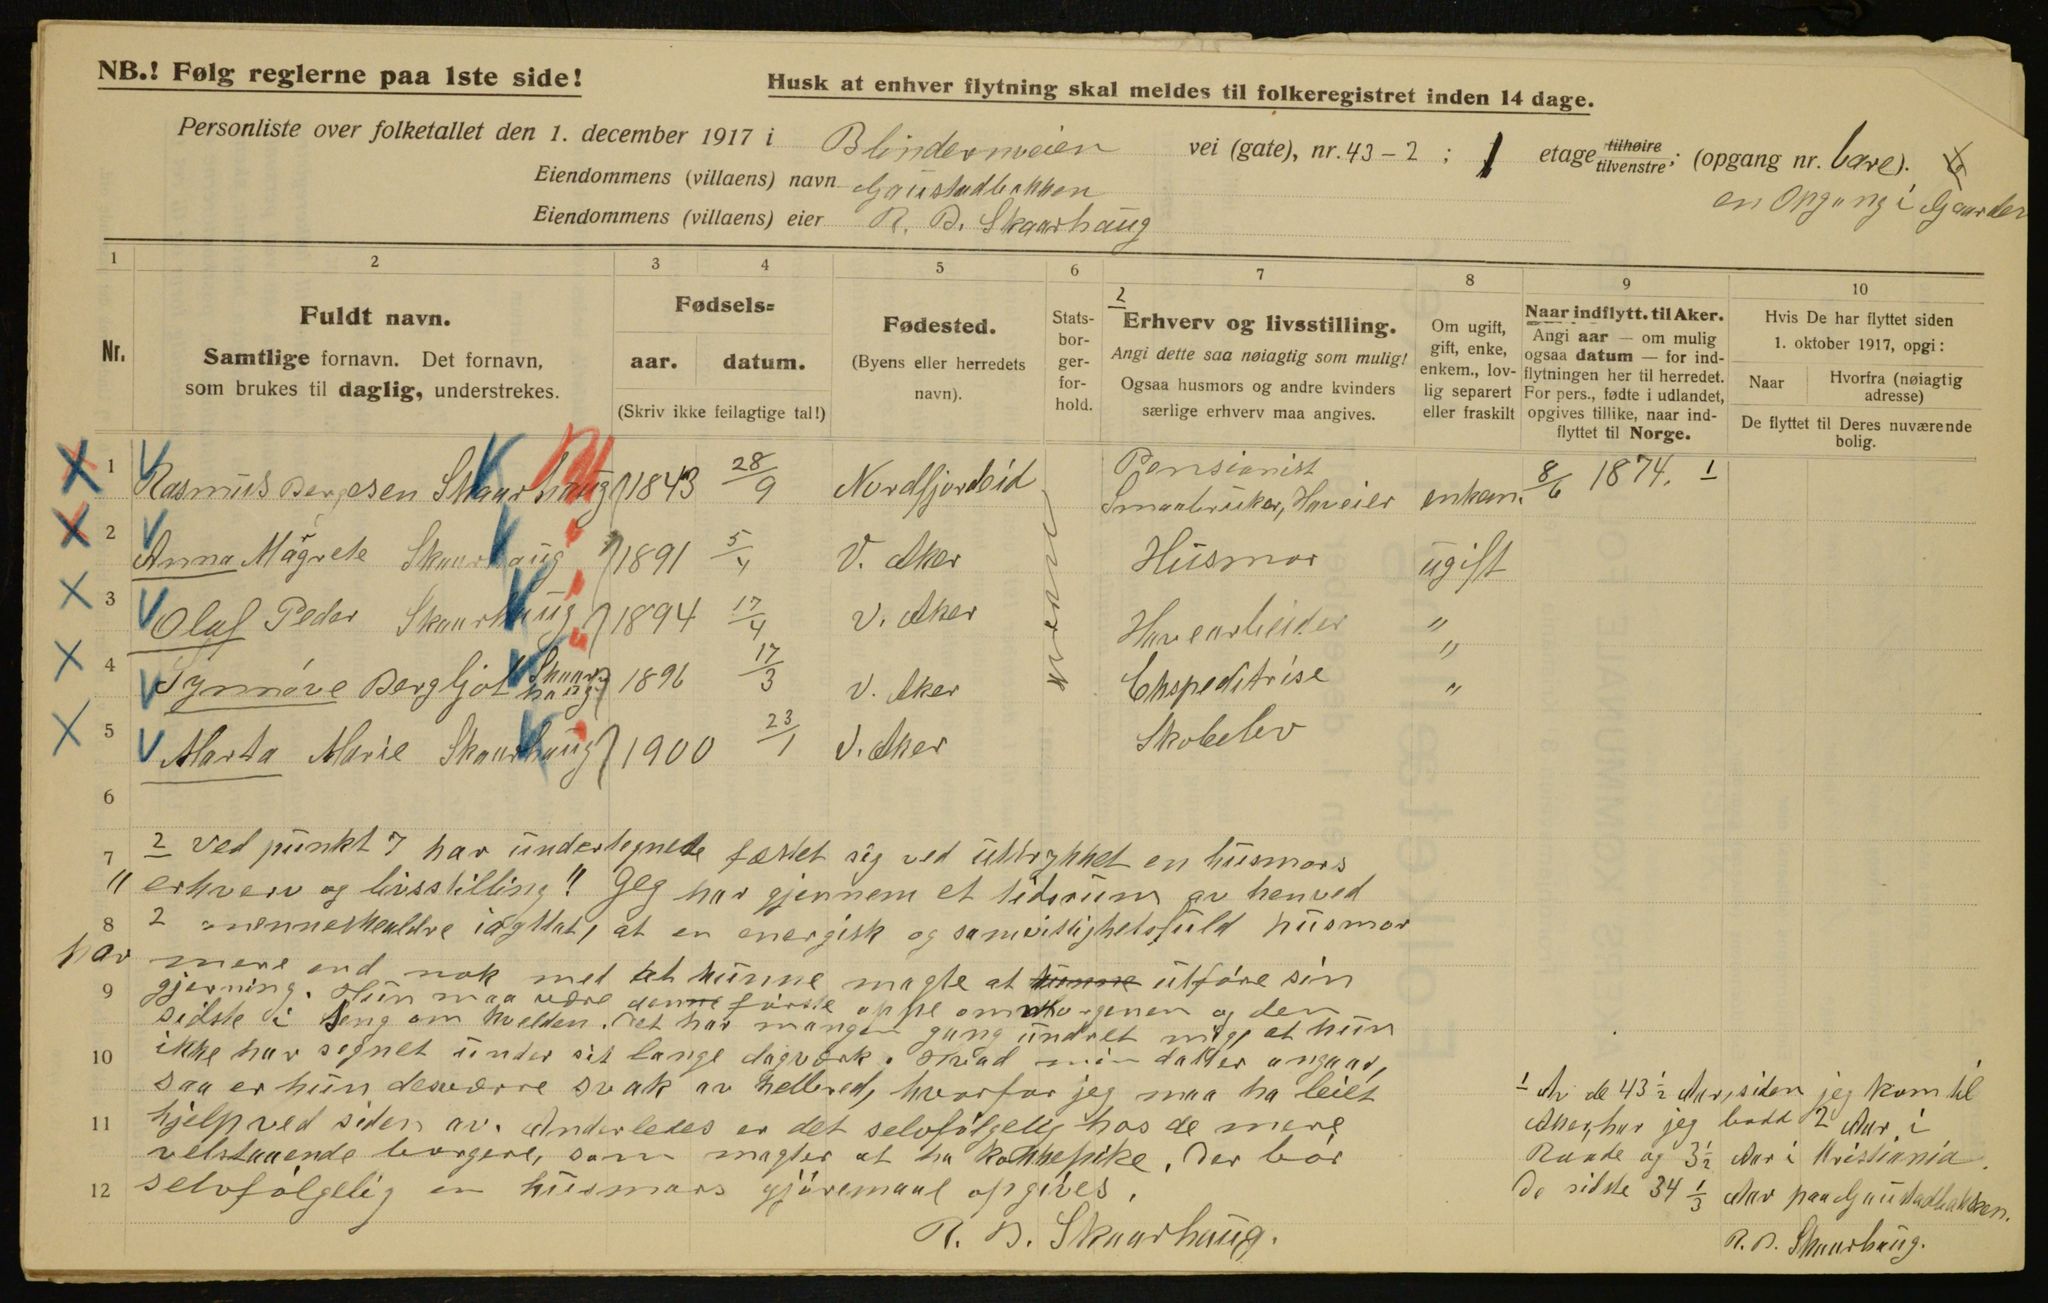 NB.! Følg reglerne paa 1ste side!
Husk at enhver flytning skal meldes til folkeregistret inden 14 dage.
Personliste over folketallet den 1. december 1917 i Blindernveien vei (gate), nr. 43-2 ; 1 etage tilhøire tilvenstre; (opgang nr. bare).
en Opgang i Gaarden
Eiendommens (villaens) navn Gaustadbakken
Eiendommens (villaens) eier R. B. Skaarhaug
1 2 3 4 5 6 7 8 9 10
Nr.
Fuldt navn.
Samtlige fornavn. Det fornavn,
som brukes til daglig, understrekes.
Fødsels=
aar. datum.
(Skriv ikke feilagtige tal!)
Fødested.
(Byens eller herredets
navn).
Stats-
bor-
ger-
for-
hold.
2
Erhverv og livsstilling.
Angi dette saa nøiagtig som mulig!
Ogsaa husmors og andre kvinders
særlige erhverv maa angives.
Om ugift,
gift, enke,
enkem., lov-
lig separert
eller fraskilt
Naar indflytt. til Aker.
Angi aar — om mulig
ogsaa datum — for ind-
flytningen her til herredet.
For pers., fødte i udlandet,
opgives tillike, naar ind-
flyttet til Norge.
Hvis De har flyttet siden
1. oktober 1917, opgi:
Naar Hvorfra (nøiagtig
adresse)
De flyttet til Deres nuværende
bolig.
1 Rasmus Bergesen Skaarhaug 1843 28/9 Nordfjordeid Pensionist
Smaabruker, Haveier enkem. 8/6 1874. 1
2 Anna Magrete Skaarhaug 1891 5/4 V. Aker Husmor ugift
3 Olaf Peder Skaarhaug 1894 17/4 V. Aker Havearbeider "
4 Synnöve Bergljot Skaarhaug 1896 17/3 V. Aker Ekspeditrise "
5 Marta Marie Skaarhaug 1900 23/1 V. Aker Skoleelev "
norsk
6
7 2 Ved punkt 7 har undertegnede fæstet sig ved uttrykket en husmors
" erhverv og livsstilling" Jeg har gjennem et tidsrum av henved
8 2 menneskealdre iagttat, at en energisk og samvittighetsfuld husmor
har mere end nok med at kunne magte at kunne utföre sin
9 gjerning. Hun maa være den förste oppe om morgenen og den
sidste i seng om kvelden. Det har mangen gang undret mig, at hun
10 ikke har segnet under sit lange dagverk. Hvad min datter angaar,
saa er hun desværre svak av helbred, hvorfor jeg maa ha leiet
11 hjelp ved siden av. Anderledes er det selvfölgelig hos de mere
velstaaende borgere, som magter at ha kokkepike. Der bör
12 selvfölgelig en husmors gjöremaal opgives.
R. B. Skaarhaug.
1 Av de 43 1/2 Aar, siden jeg kom til
Aker, har jeg bodd 2 Aar i
Raade og 3 1/2 Aar i Kristiania.
De sidste 34 1/3 Aar paa Gaustadbakken.
R. B. Skaarhaug.